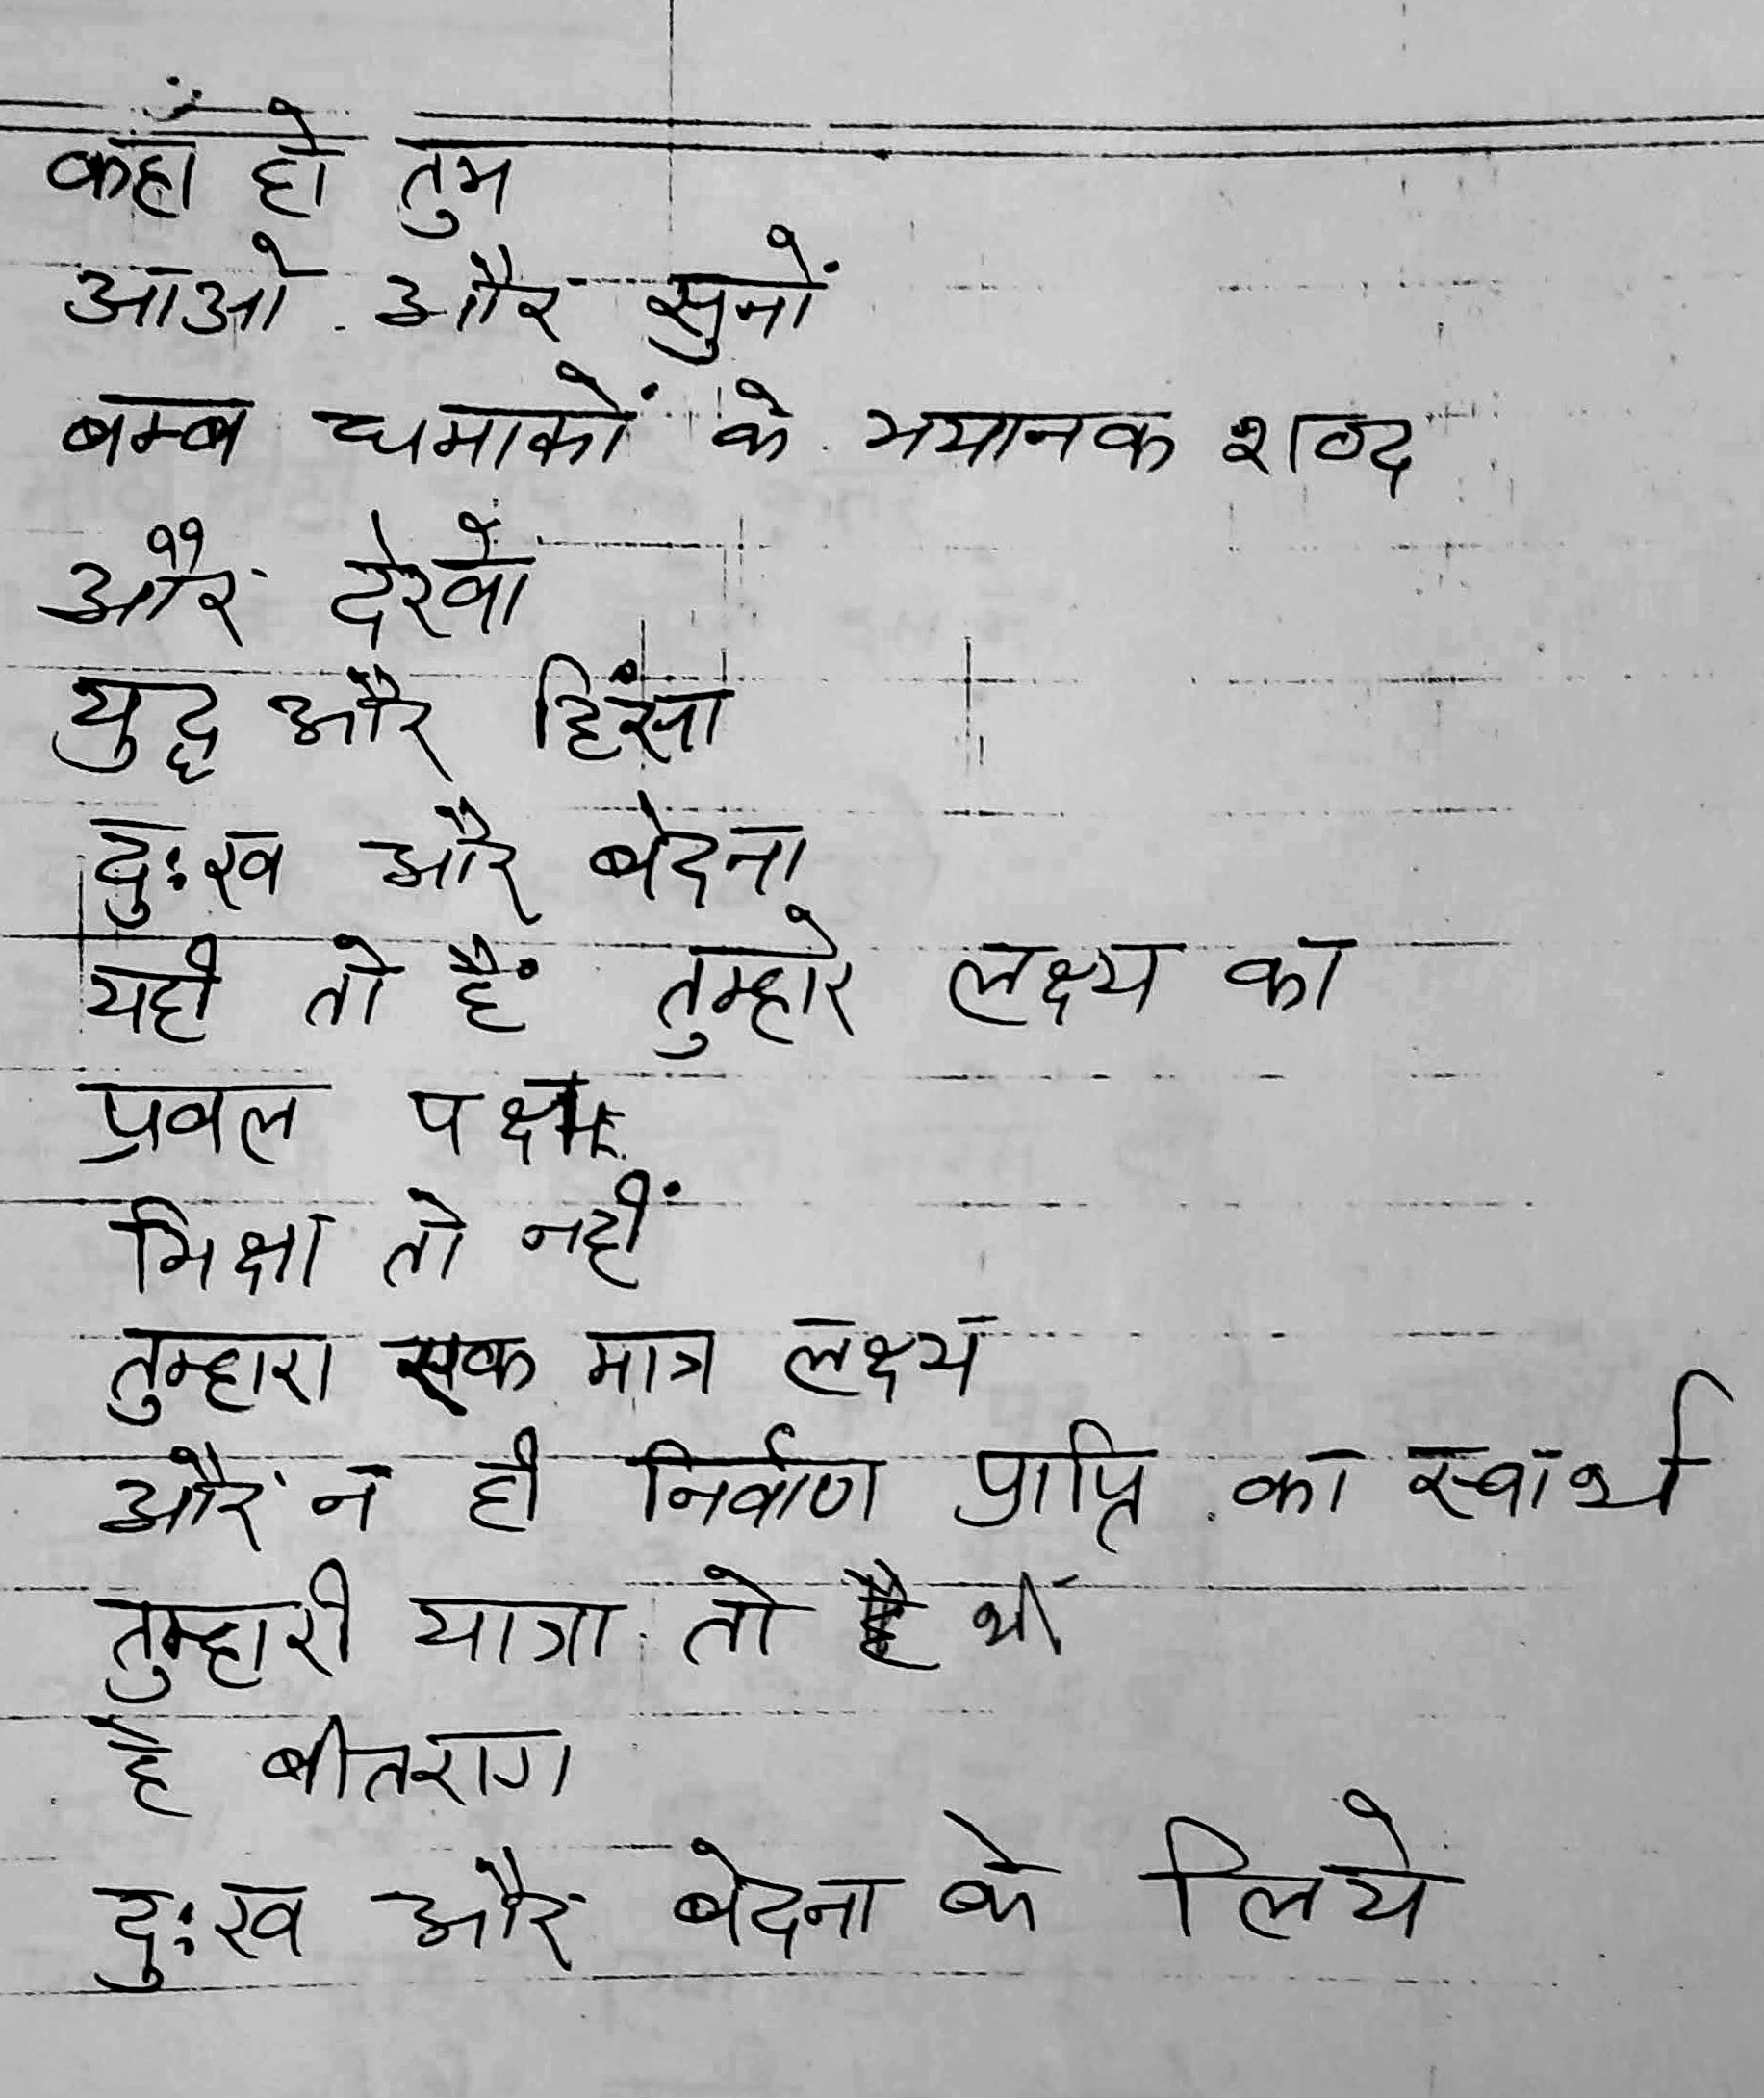 कहाँ हो तुम
आओ और सुनों
बम्ब धमाकों के भयानक शब्द
और देखो
युद्ध और हिंसा
दुःख और बेदना
यही तो है तुम्हारे लक्ष्य का
प्रबल पक्ष
भिक्षा तो नहीं
तुम्हारा एक मात्र लक्ष्य
और न ही निर्वाण प्राप्ति का स्वार्थ
तुम्हारी यात्रा तो थी
हे बीतराग
दुःख और बेदना के लिये